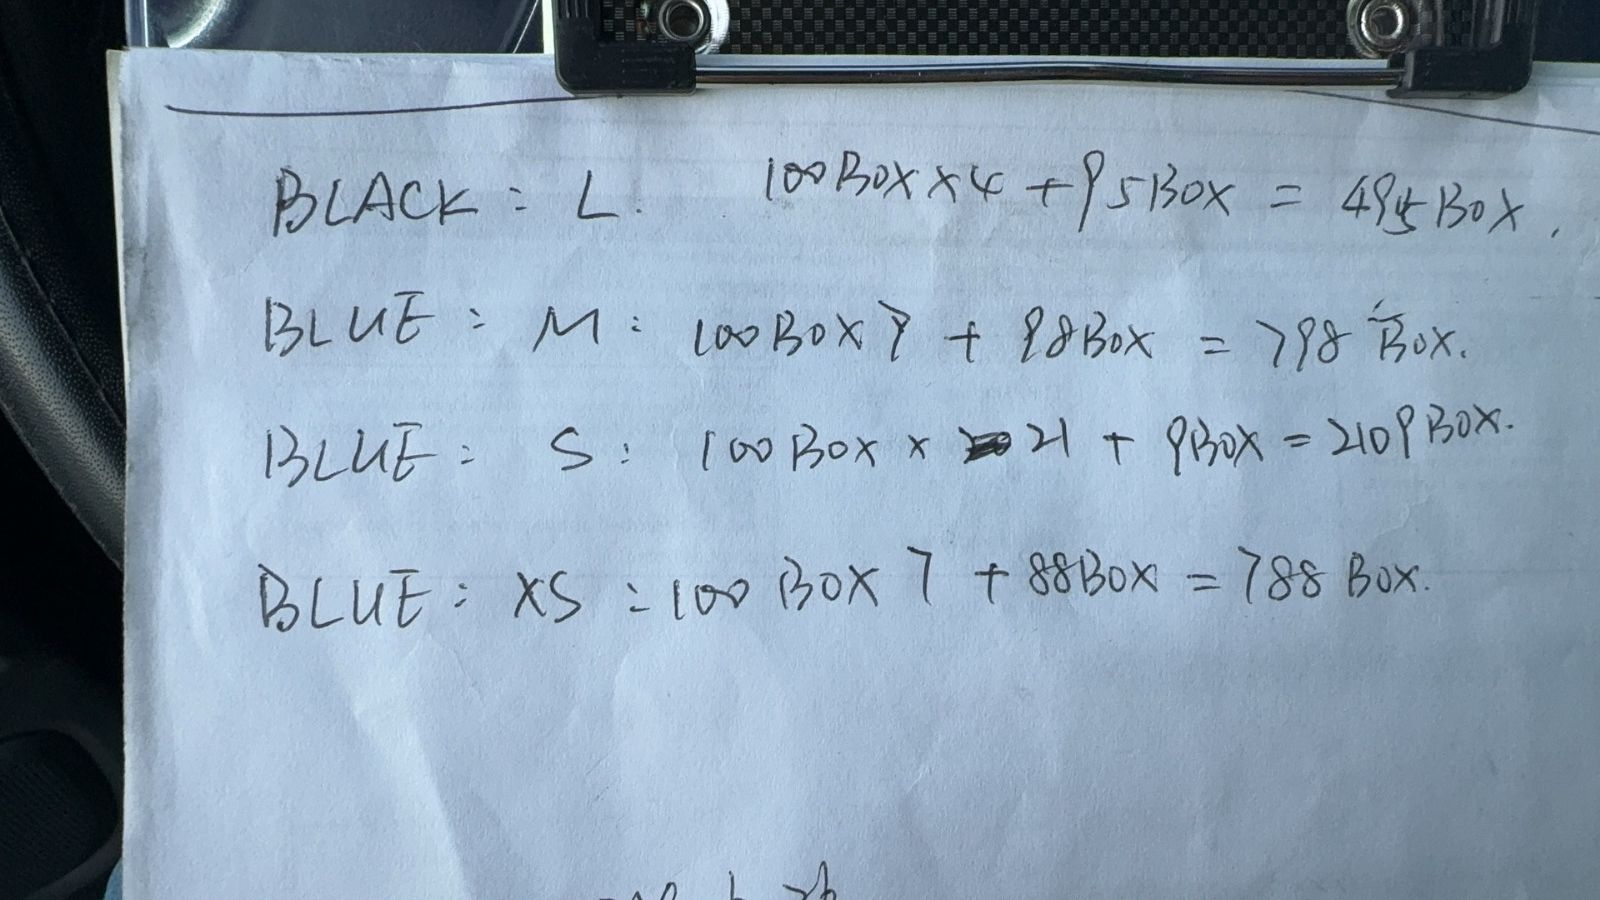 BLACK : L. 100BOX x 4 + 95BOX = 495BOX.
BLUE : M : 100BOX 7 + 98BOX = 798 BOX.
BLUE : S : 100BOX x 21 + 9BOX = 2109BOX.
BLUE : XS : 100 BOX 7 + 88BOX = 788 BOX.